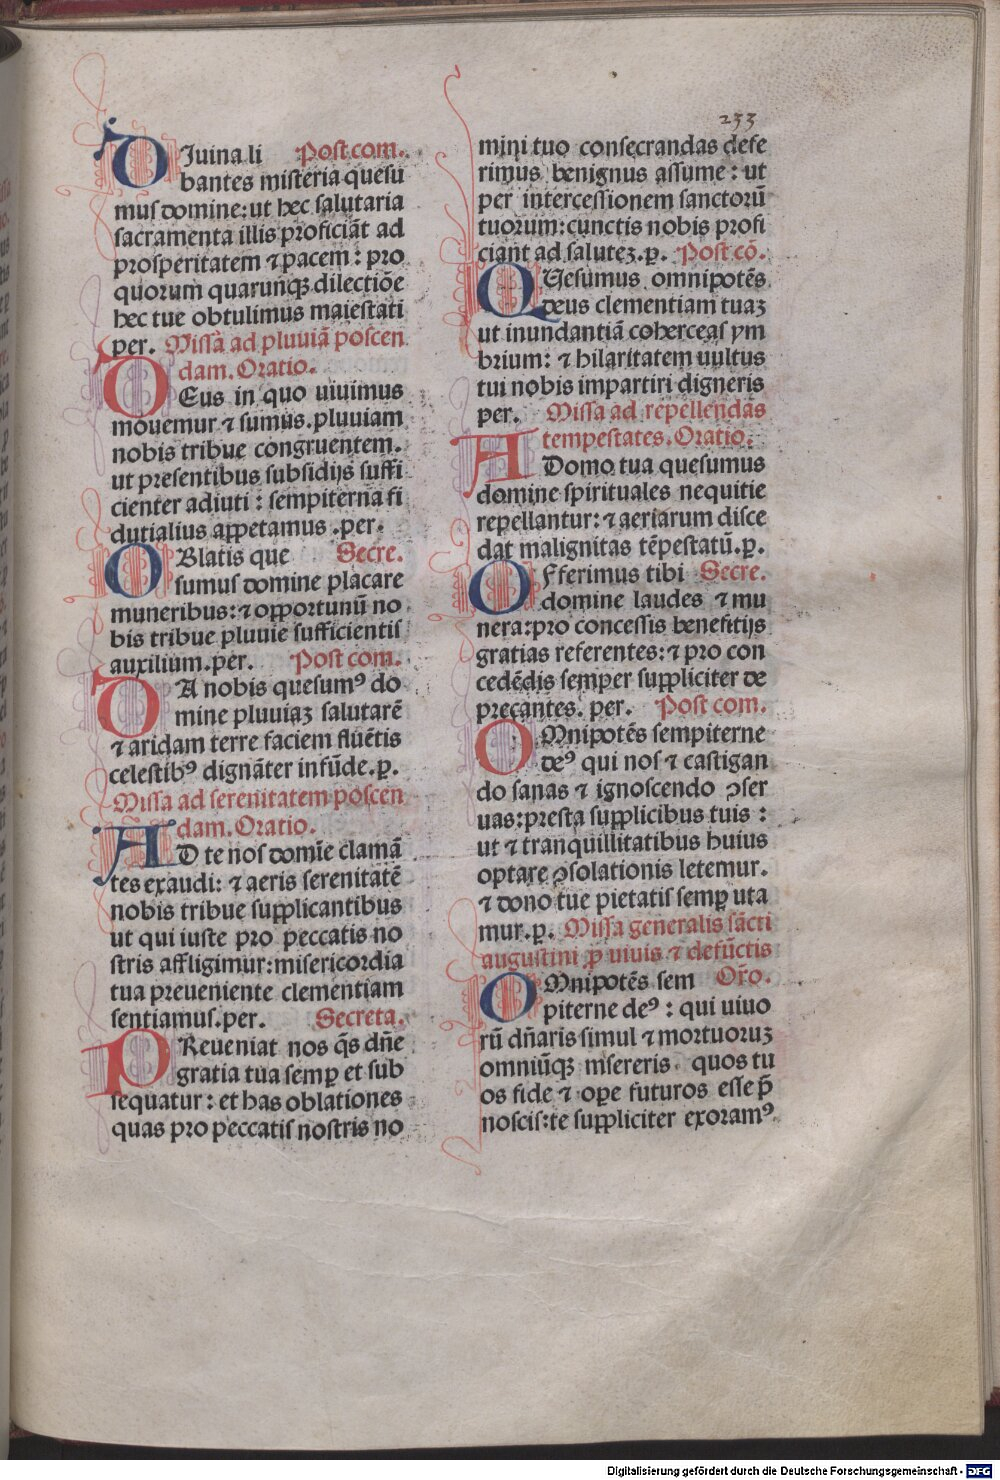 233
DJuina li Post com.
bantes misteria quesu
mus domine: ut hec salutaria
sacramenta illis proficiãt ad
prosperitatem ⁊ pacem: pro
quorum quarunqꝫ dilectiõe
hec tue obtulimus maiestati
per. Missa ad pluuiã poscen
dam. Oratio.
DEus in quo uiuimus
mouemur ⁊ sumus. pluuiam
nobis tribue congruentem.
ut presentibus subsidijs suffi
cienter adiuti: sempiterna fi
dutialius appetamus .per.
OBlatis que Secre.
sumus domine placare
muneribus: ⁊ opportunũ no
bis tribue pluuie sufficientis
auxilium. per. Post com.
DA nobis quesumꝰ do
mine pluuiaꝫ salutarẽ
⁊ aridam terre faciem fluẽtis
celestibꝰ dignãter infũde. p.
Missa ad serenitatem poscen
dam. Oratio.
AD te nos domĩe clamã
tes exaudi: ⁊ aeris serenitatẽ
nobis tribue supplicantibus
ut qui iuste pro peccatis no
stris affligimur: misericordia
tua preueniente clementiam
sentiamus. per. Secreta.
PReueniat nos q̃s dñe
gratia tua semꝑ et sub
sequatur: et has oblationes
quas pro peccatis nostris no
mini tuo consecrandas defe
rimus benignus assume: ut
per intercessionem sanctorũ
tuorum: cunctis nobis profi
ciant ad saluteꝫ. p. Post cõ.
QUesumus omnipotẽs
deus clementiam tuaꝫ
ut inundantiã coherceas ym
brium: ⁊ hilaritatem uultus
tui nobis impartiri digneris
per. Missa ad repellendas
tempestates. Oratio.
A Domo tua quesumus
domine spirituales nequitie
repellantur: ⁊ aeriarum disce
dat malignitas tẽpestatũ. p.
OFferimus tibi Secre.
domine laudes ⁊ mu
nera: pro concessis benefitijs
gratias referentes: ⁊ pro con
cedẽdis semper suppliciter de
precantes. per. Post com.
OMnipotẽs sempiterne
deꝰ qui nos ⁊ castigan
do sanas ⁊ ignoscendo ꝯser
uas: presta supplicibus tuis:
ut ⁊ tranquillitatibus huius
optare ꝯsolationis letemur.
⁊ dono tue pietatis semꝑ uta
mur. p. Missa generalis sãcti
augustini ꝓ uiuis ⁊ defũctis
OMnipotẽs sem Or̃o.
piterne deꝰ: qui uiuo
rũ dñaris simul ⁊ mortuoruꝫ
omniũqꝫ misereris. quos tu
os fide ⁊ oꝑe futuros esse p̃
noscis: te suppliciter exoramꝰ
Digitalisierung gefördert durch die Deutsche Forschungsgemeinschaft - DFG